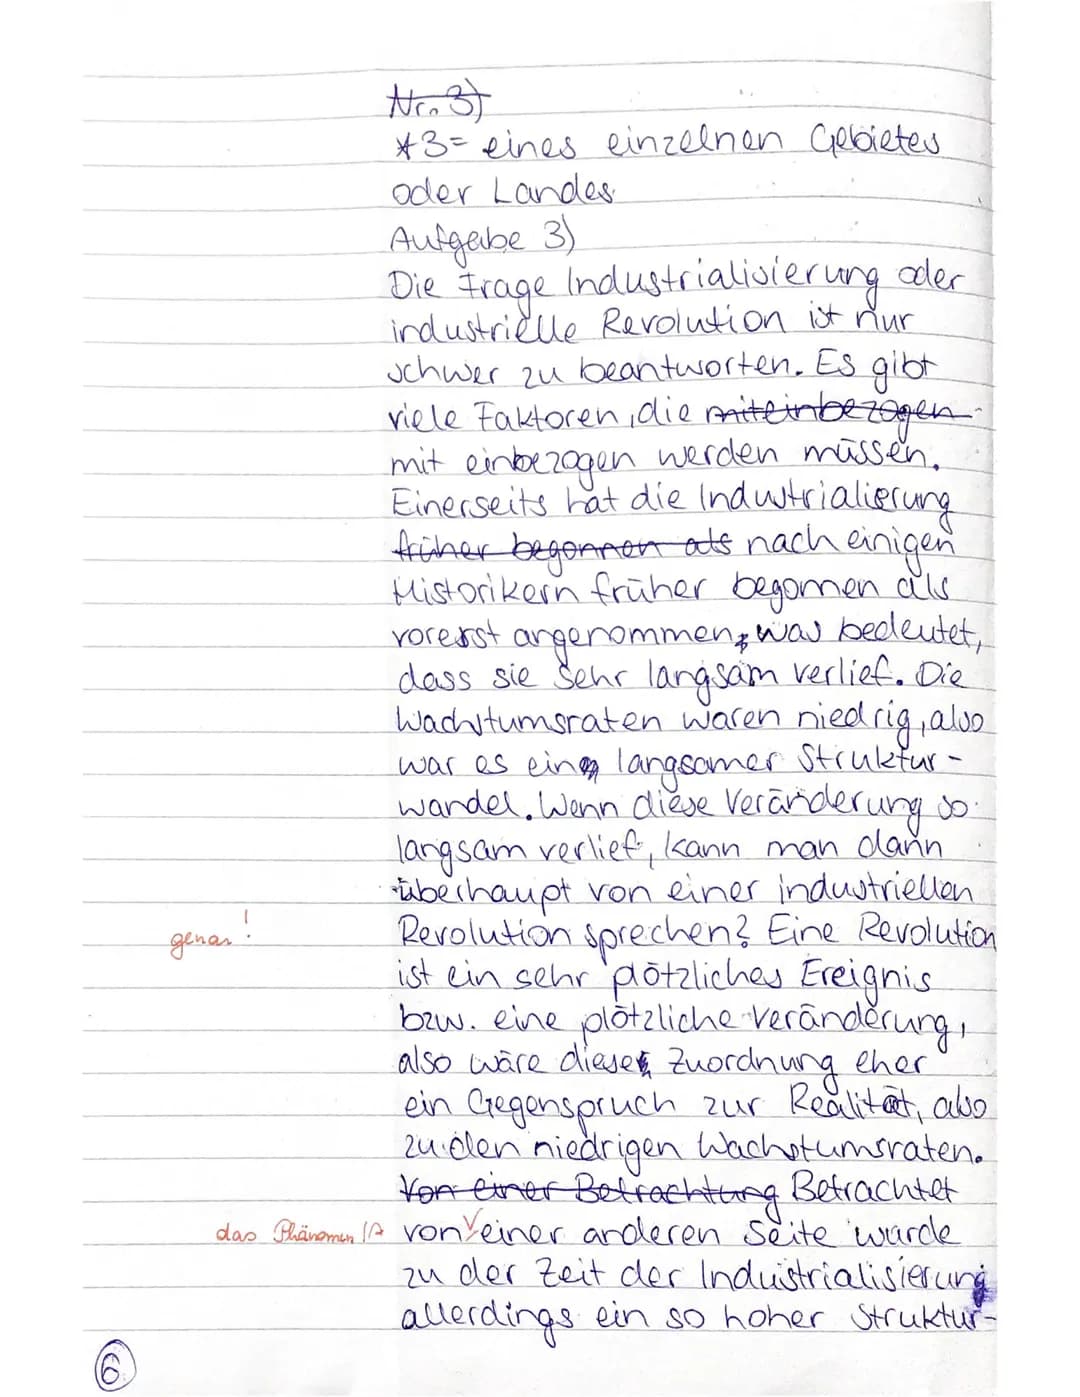 Nr. 3)
*3= eines einzelnen Gebietes
oder Landes
Aufgabe 3)
Die Frage Industrialisierung oder
industrielle Revolution ist nur
schwer zu beantworten. Es gibt
viele Faktoren, die miteinbezogen
mit einbezogen werden müssen.
Einerseits hat die Industrialierung
früher begonnen als nach einigen
Historikern früher begonnen als
vorerst angenommen, was bedeutet,
dass sie sehr langsam verlief. Die
Wachstumsraten waren niedrig, also
war es ein langsamer Struktur-
wandel. Wenn diese Veränderung so
langsam verlief, kann man dann
überhaupt von einer industriellen
genau! Revolution sprechen? Eine Revolution
ist ein sehr plötzliches Ereignis
bzw. eine plötzliche Veränderung,
also wäre diese Zuordnung eher
ein Gegenspruch zur Realität, also
zu den niedrigen Wachstumsraten.
Von einer Betrachtung Betrachtet
das Phänomen /A von einer anderen Seite wurde
zu der Zeit der Industrialisierung
allerdings ein so hoher Struktur-
6